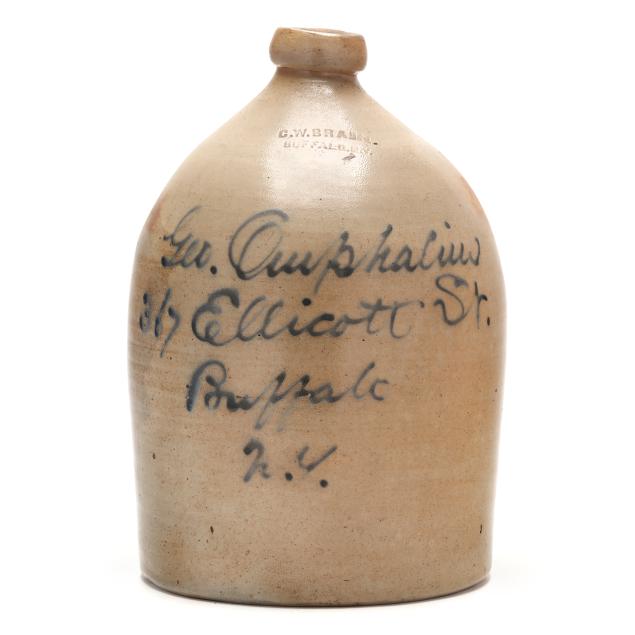 C.W.BRAUN.
BUFFALO.N.Y.
Geo. Omphalius
367 Ellicott St.
Buffalo
N.Y.